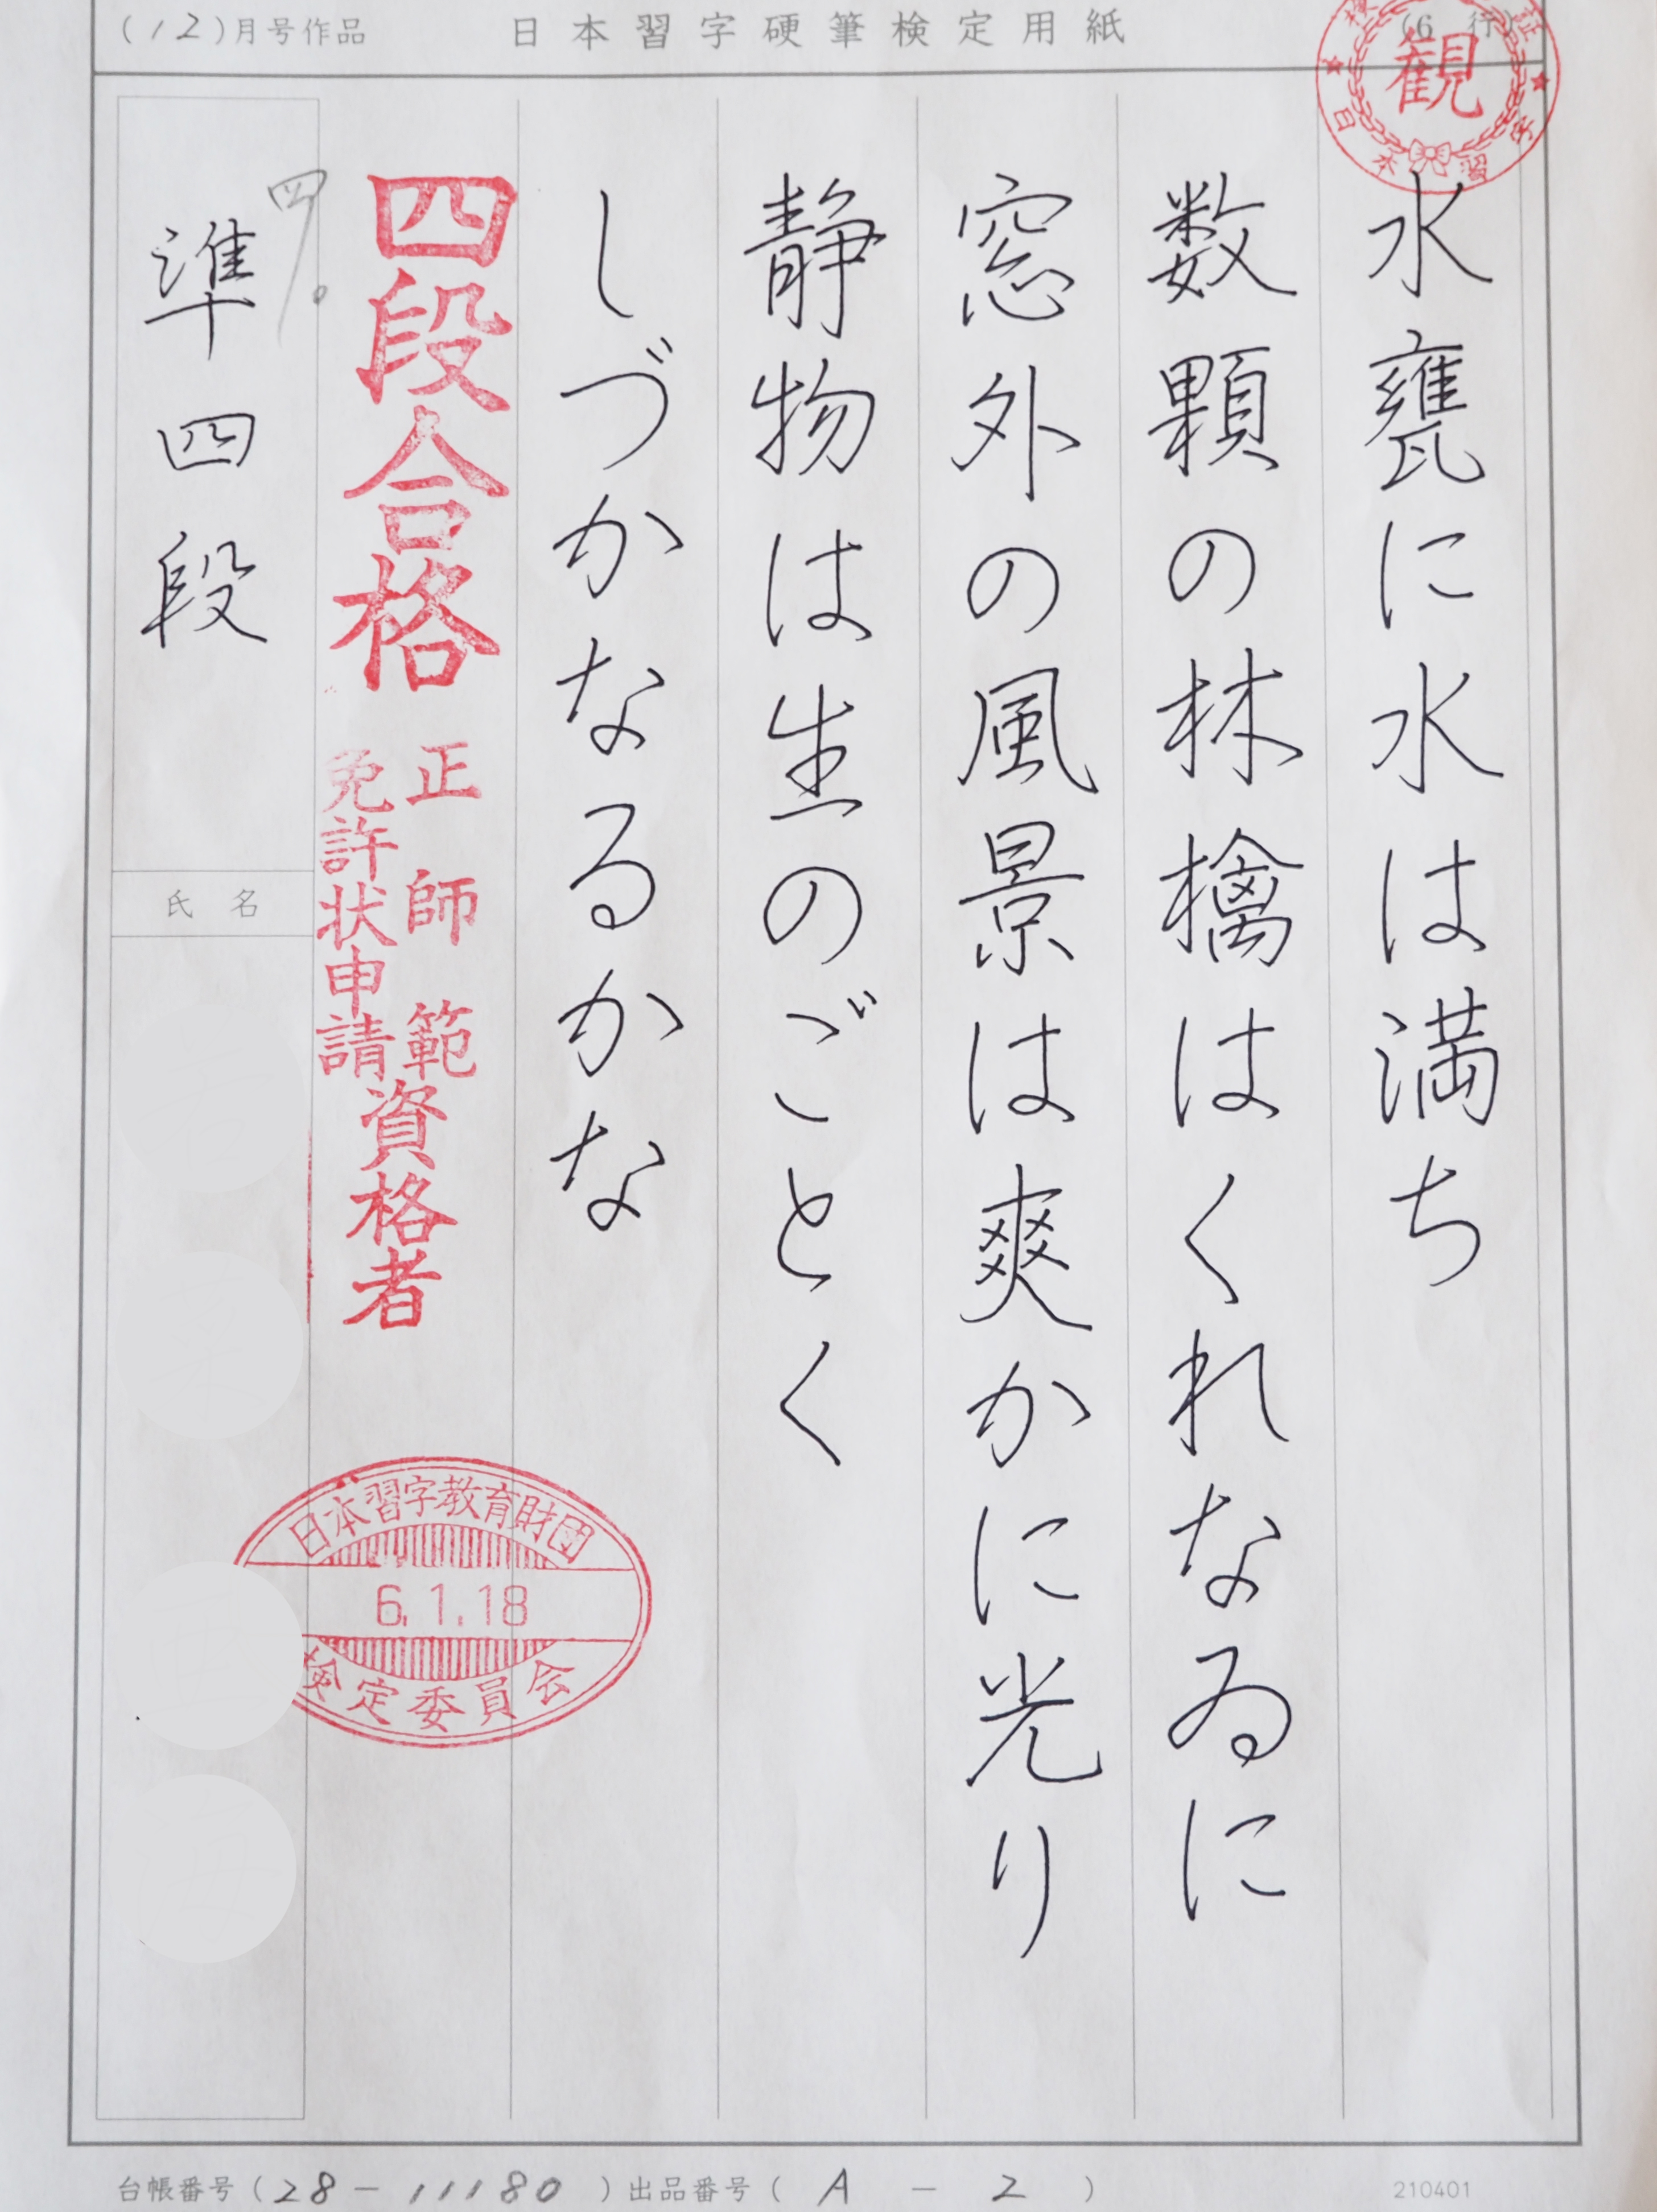 (12)月号作品 日本習字硬筆検定用紙 (6 行)
観
日本習字
水甕に水は満ち
数顆の林檎はくれなゐに
窓外の風景は爽かに光り
静物は生のごとく
しづかなるかな
四段合格
正師範
免許状申請
資格者
四
準四段
氏名
日本習字教育財団
6.1.18
検定委員会
台帳番号(28-11180)出品番号(A-2)
210401